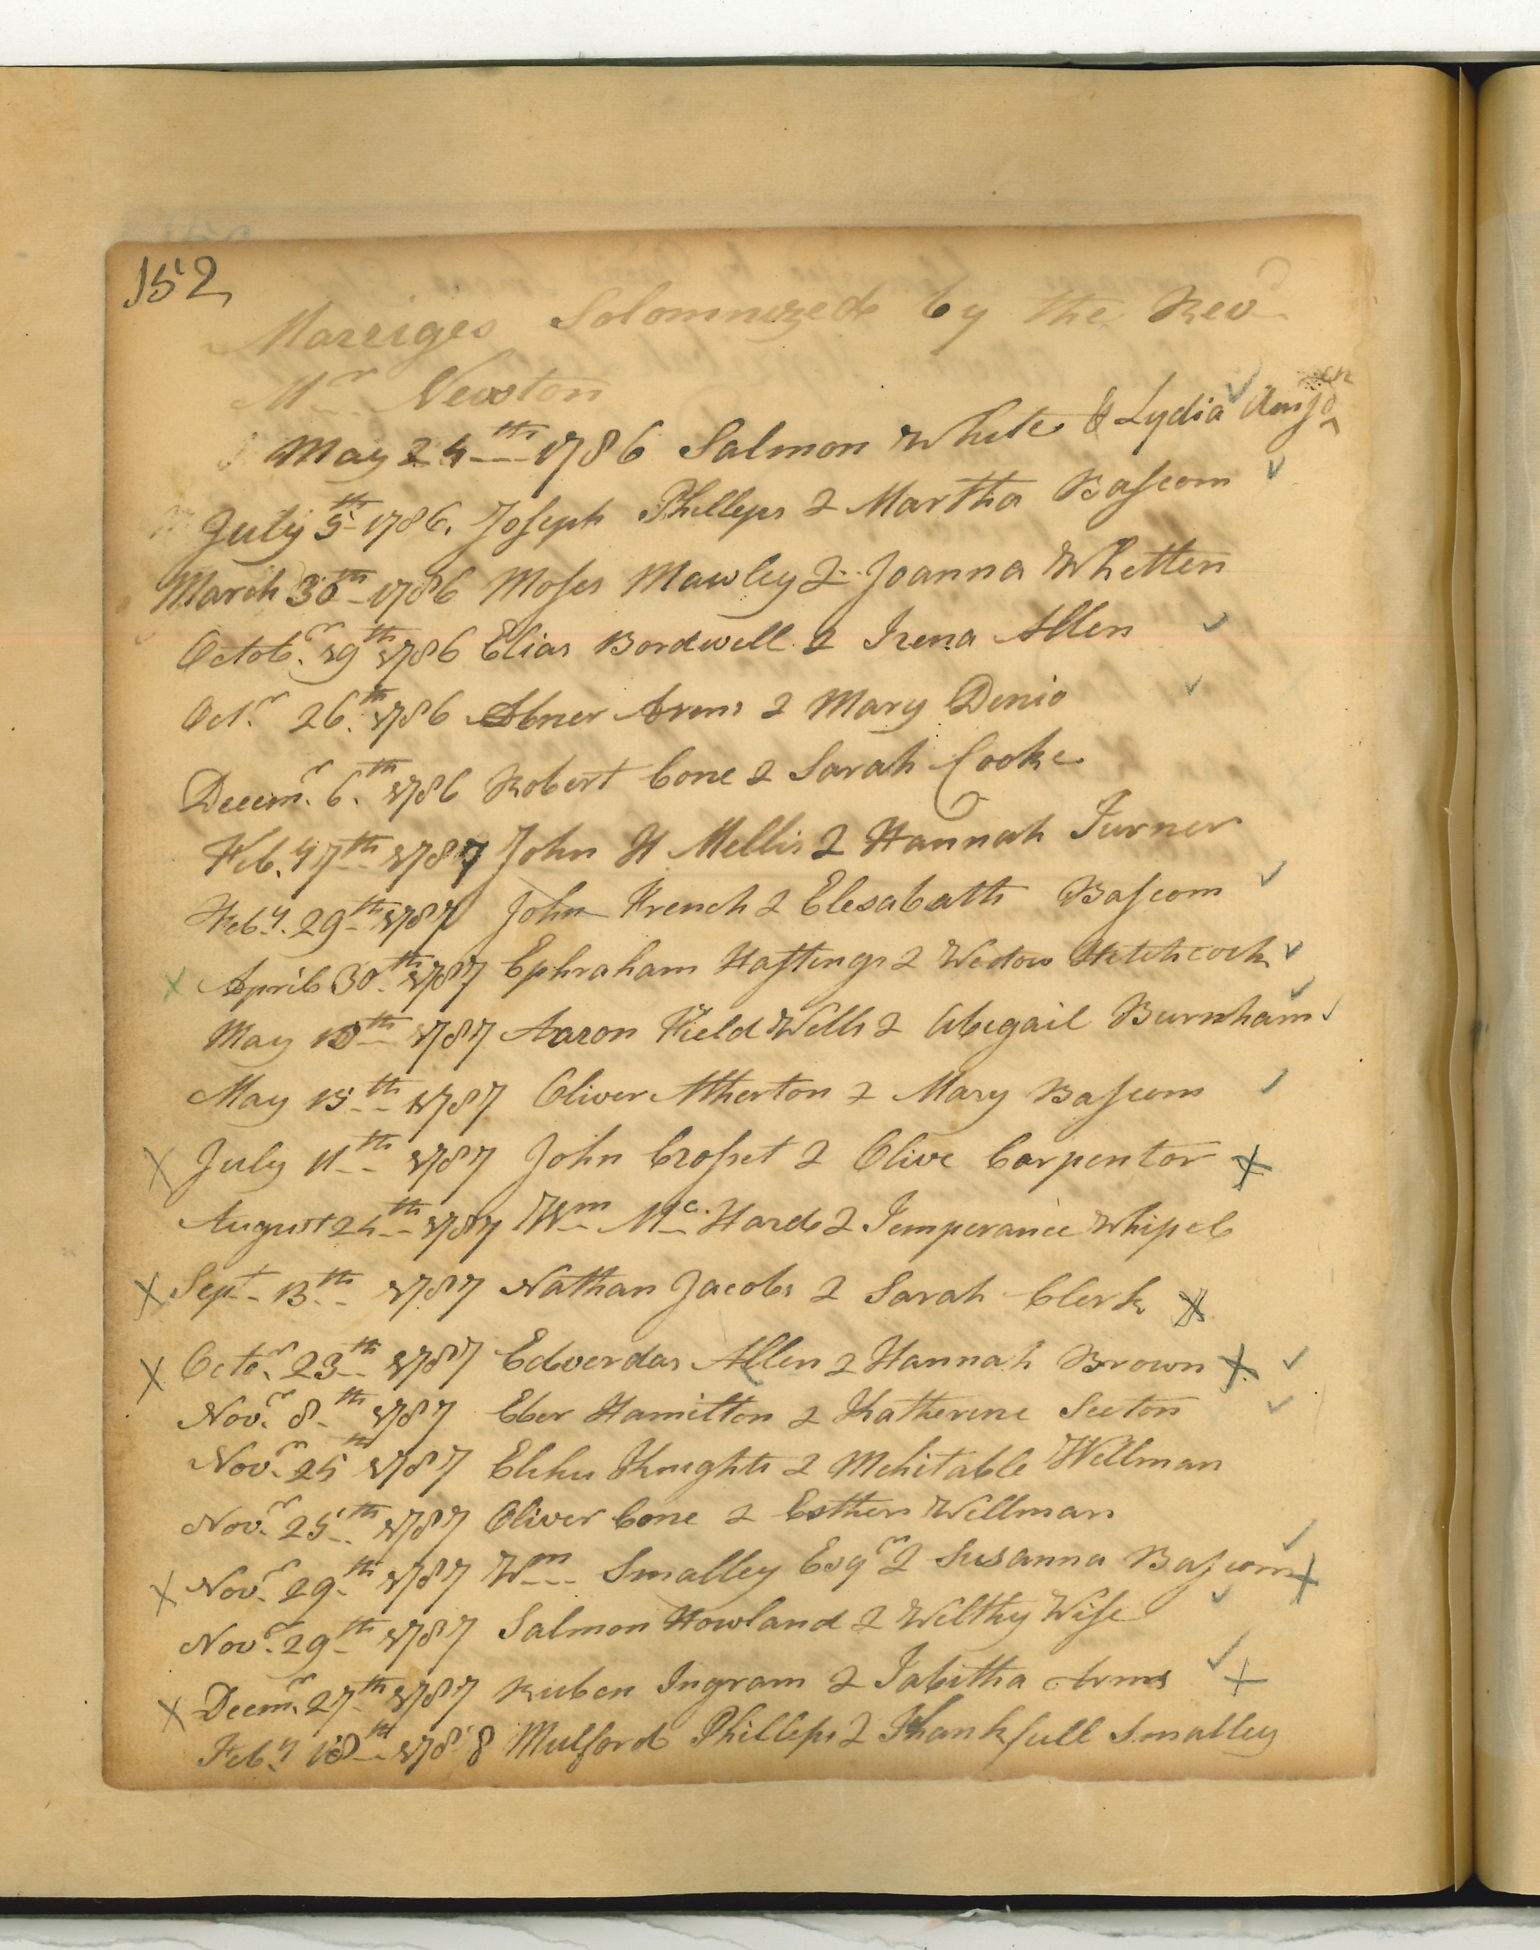 152
Marriges Solomnized by the Revd
Mr Newton
May 24th 1786 Salmon White & Lydia
July 5th 1786. Joseph Phillips & Martha Bascom
March 30th 1786 Moses Mawley & Joanna Whitten
Octobr. 19th 1786 Elias Bordwell & Irena Allen
Octr. 26th 1786 Abner Arms & Mary Denio
Decemr. 6th 1786 Robert Cone & Sarah Cooke
Feb.y 7th 1787 John H Mellis & Hannah Turner
Feby. 29th 1787 John French & Elesabath Bascom
April 30th 1787 Ephraham Hastings & Wedow Hitchcock
May 10th 1787 Aaron Field Wells & Abegail Burnham
May 15th 1787 Oliver Atherton & Mary Bascom
July 11th 1787 John Crosset & Olive Carpentor
August 24th 1787 Wm Mc. Hard & Temperance Whipel
Sept. 13th 1787 Nathan Jacobs & Sarah Clerk
Octor. 23th 1787 Edverdas Allen & Hannah Brown
Novr. 8th 1787 Eber Hamilton & Katherine Secton
Novr. 25th 1787 Elihu Knights & Mehitable Wellman
Novr. 25th 1787 Oliver Cone & Esther Wellman
Novr. 29th 1787 Wm Smalley Esqr & Susanna Bascom
Novr. 29th 1787 Salmon Howland & Wilthy Wise
Decemr. 27th 1787 Ruben Ingram & Tabitha Arms
Feby. 18th 1788 Mulford Phillips & Thankfull Smalley